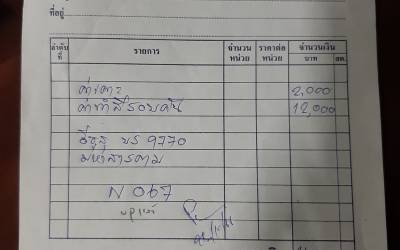 ที่อยู่
ลำดับที่ รายการ จำนวนหน่วย ราคาต่อหน่วย จำนวนเงิน บาท สต.
2,000
ค่าทำสีรอบคัน 12,000
อีซูซุ บร 9770
มหาสารคาม
N 067